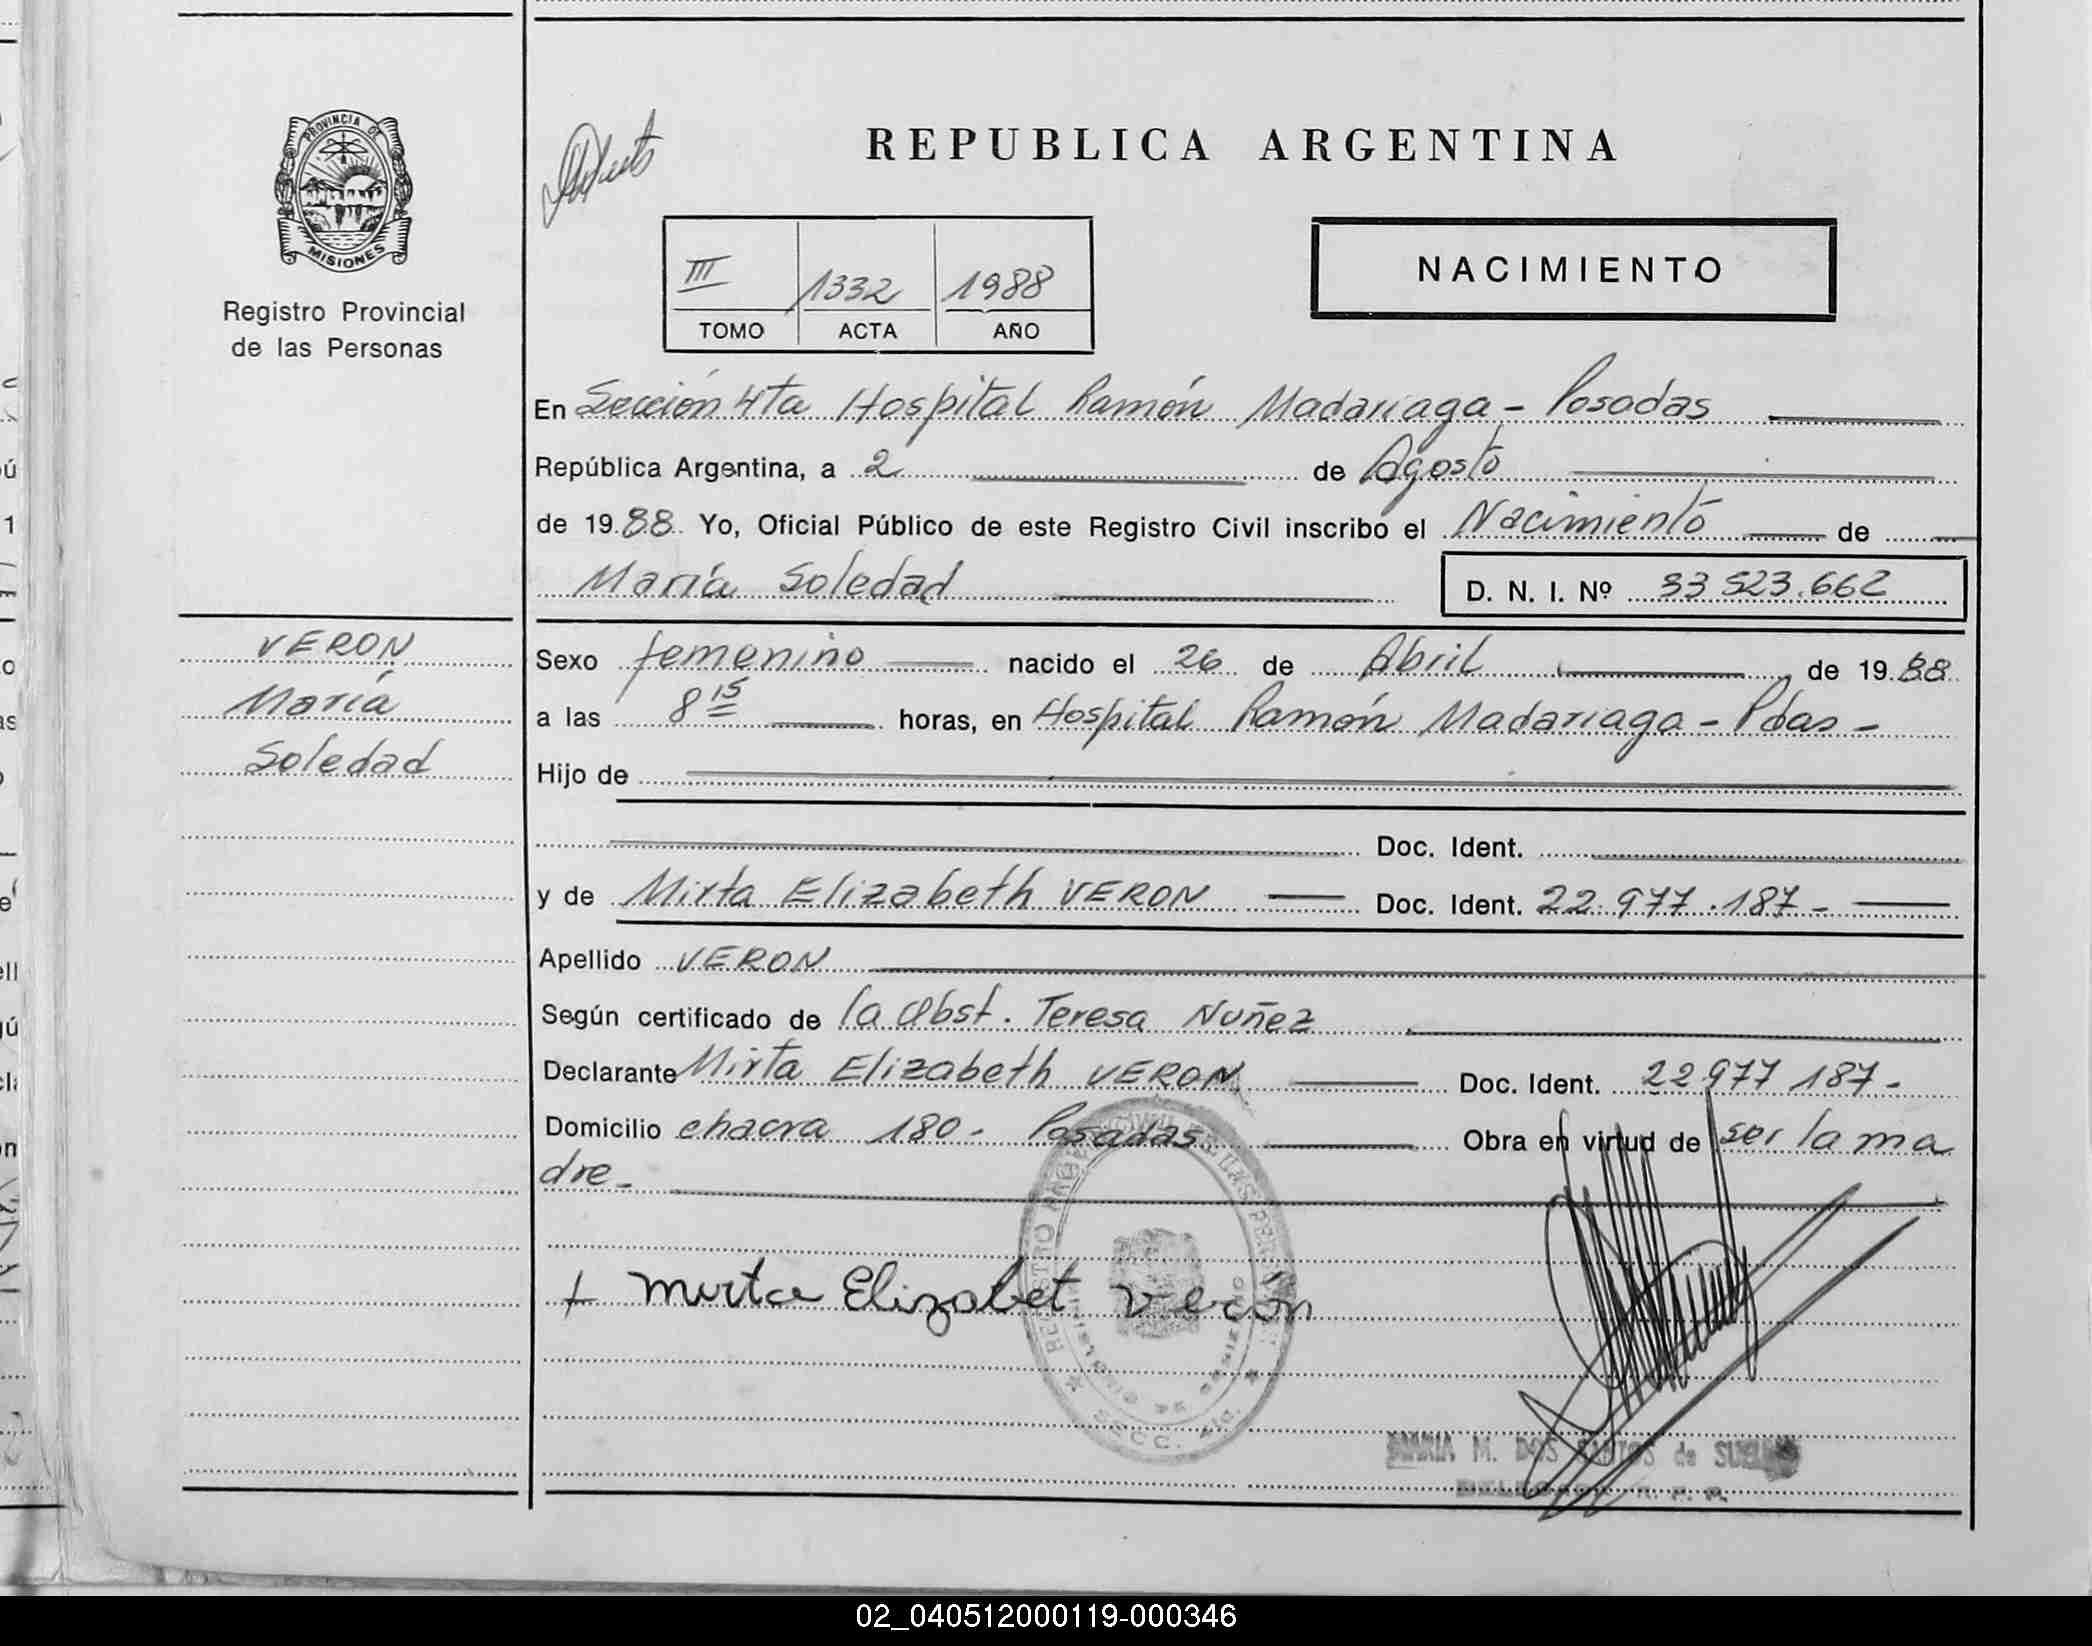 PROVINCIA DE
MISIONES
Registro Provincial
de las Personas
REPUBLICA ARGENTINA
NACIMIENTO
III 1332 1988
TOMO ACTA AÑO
En Sección 4ta Hospital Ramón Madariaga - Posadas
República Argentina, a 2 de Agosto
de 1988 Yo, Oficial Público de este Registro Civil inscribo el Nacimiento de
María Soledad D. N. I. Nº 33 523.662
VERON
María
Soledad
Sexo femenino nacido el 26 de Abril de 1988
a las 8 15 horas, en Hospital Ramón Madariaga - Pdas -
Hijo de
Doc. Ident.
y de Mirta Elizabeth VERON Doc. Ident. 22.977.187-
Apellido VERON
Según certificado de la Obst. Teresa Nuñez
Declarante Mirta Elizabeth VERON Doc. Ident. 22977 187-
Domicilio chacra 180- Posadas Obra en virtud de ser la ma
dre-
Mirta Elizabet verón
REGISTRO PROVINCIAL DE LAS PERSONAS
SECC. 4ta.
MARIA M. DOS SANTOS de
02_040512000119-000346